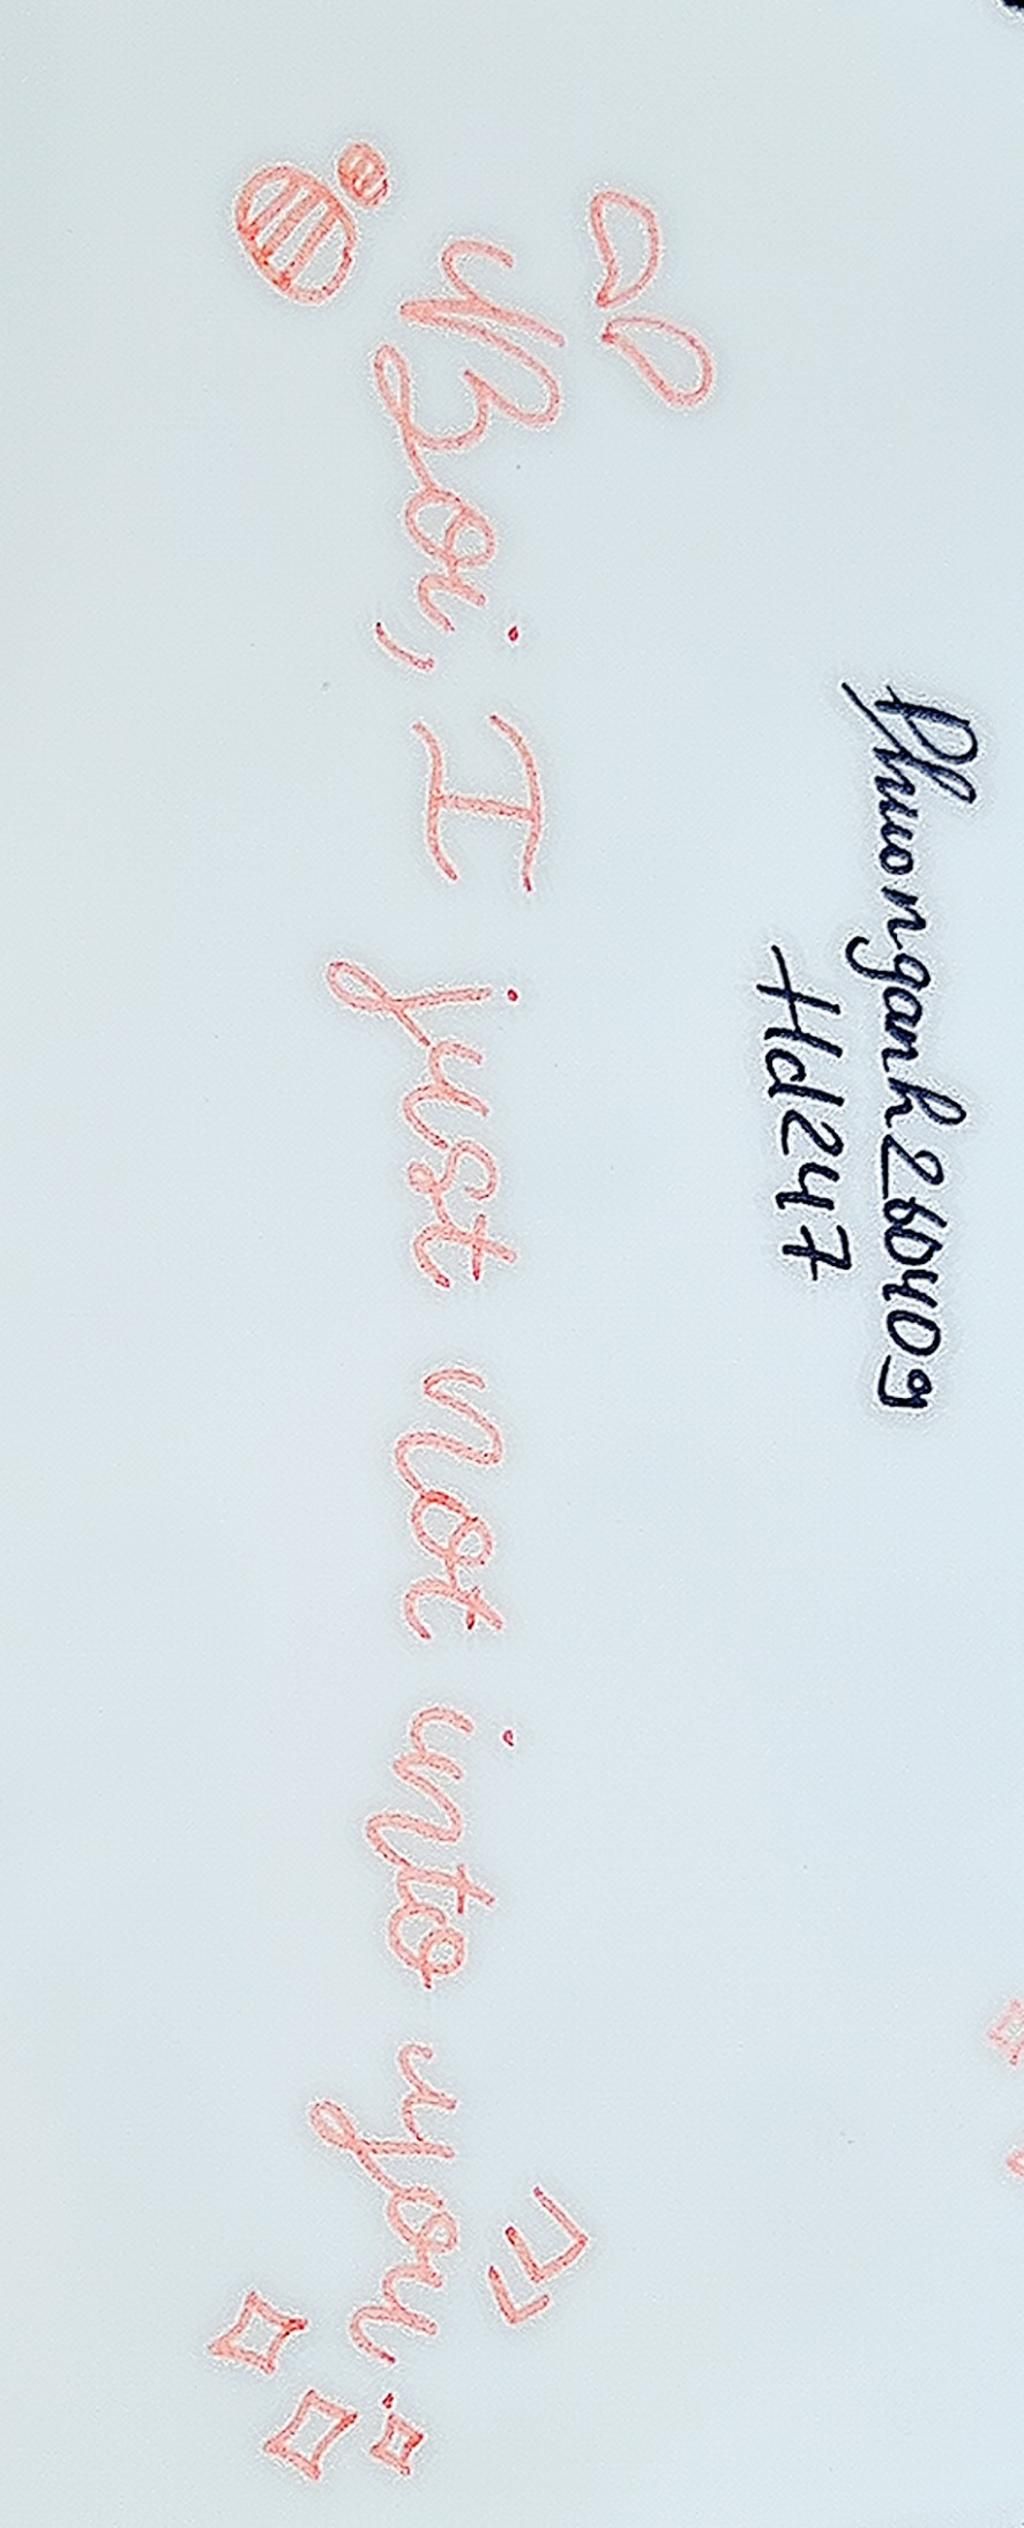 Phuonganh260409
Hd247
Boi, I just not into you.